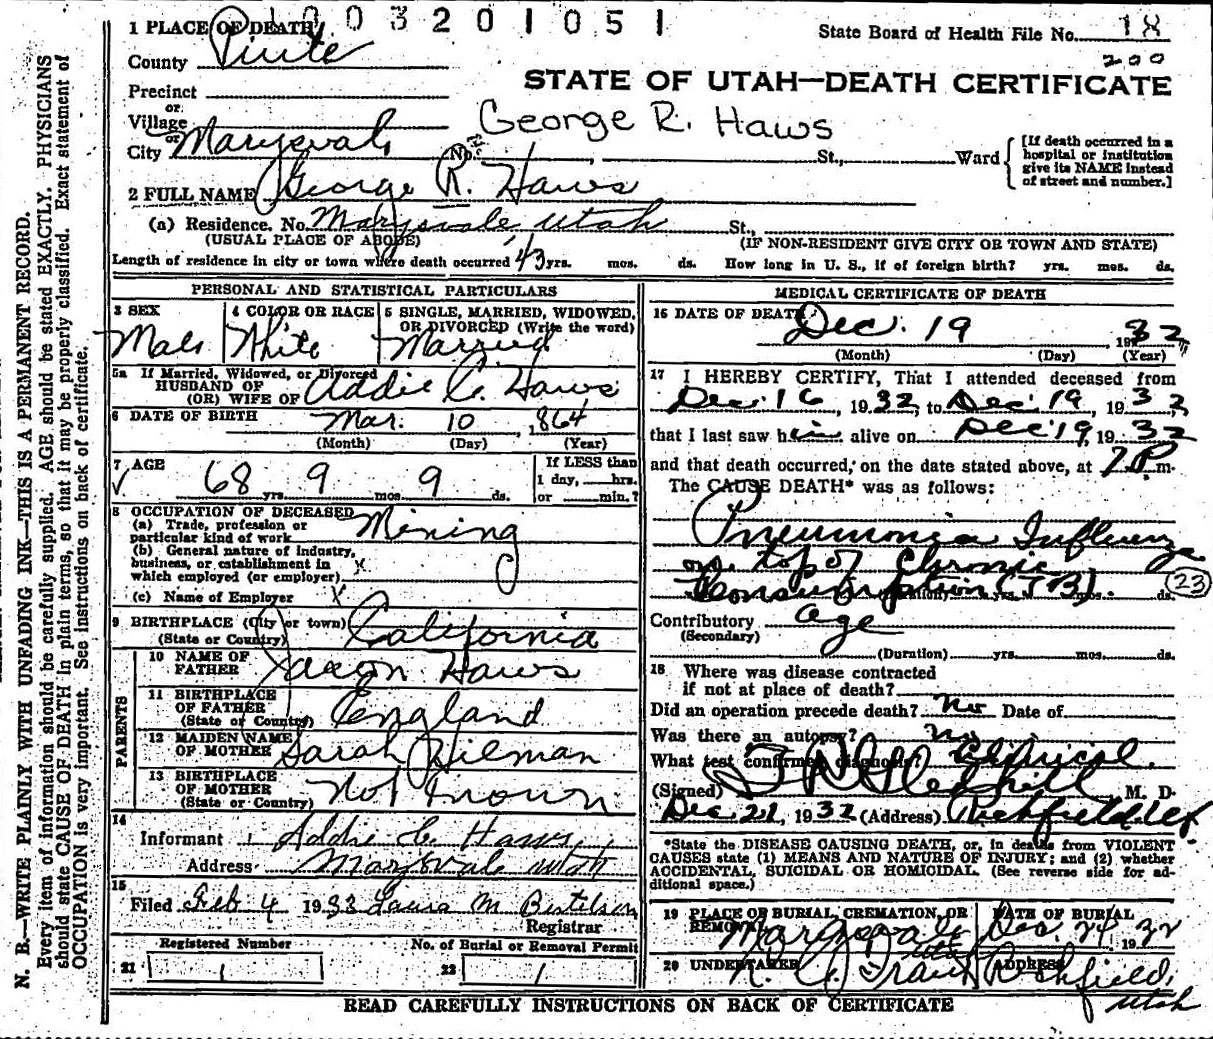 1003201051
1 PLACE OF DEATH
State Board of Health File No. 18
200
County Piute
STATE OF UTAH—DEATH CERTIFICATE
Precinct
or
Village
George R. Haws
or
City Marysvale No. St., Ward
[If death occurred in a hospital or institution give its NAME instead of street and number.]
2 FULL NAME George R. Haws
(a) Residence. No. Marysvale, Utah St.,
(USUAL PLACE OF ABODE) (IF NON-RESIDENT GIVE CITY OR TOWN AND STATE)
Length of residence in city or town where death occurred 43 yrs. mos. ds. How long in U. S., if of foreign birth? yrs. mos. ds.
PERSONAL AND STATISTICAL PARTICULARS
3 SEX 4 COLOR OR RACE 5 SINGLE, MARRIED, WIDOWED, OR DIVORCED (Write the word)
Male White Married
5a If Married, Widowed, or Divorced
HUSBAND OF
(OR) WIFE OF Addie C. Haws
6 DATE OF BIRTH Mar. 10, 1864
(Month) (Day) (Year)
7 AGE 68 yrs. 9 mos. 9 ds.
If LESS than
1 day, hrs.
or min.?
8 OCCUPATION OF DECEASED
(a) Trade, profession or
particular kind of work Mining
(b) General nature of industry,
business, or establishment in
which employed (or employer) x
(c) Name of Employer x
9 BIRTHPLACE (City or town)
(State or Country) California
PARENTS
10 NAME OF
FATHER Haws
11 BIRTHPLACE
OF FATHER
(State or Country) England
12 MAIDEN NAME
OF MOTHER Sarah Hilman
13 BIRTHPLACE
OF MOTHER
(State or Country) Not Known
14
Informant Addie C. Haws
Address Marysvale Utah
15
Filed Feb 4 1933 Laura M
Registrar
Registered Number No. of Burial or Removal Permit
21 1 22 1
MEDICAL CERTIFICATE OF DEATH
16 DATE OF DEATH Dec. 19 1932
(Month) (Day) (Year)
17 I HEREBY CERTIFY, That I attended deceased from
Dec. 16, 1932, to Dec. 19, 1932,
that I last saw him alive on Dec 19, 1932
and that death occurred, on the date stated above, at 7 P m.
The CAUSE DEATH* was as follows:
Pneumonia Influenza
on top of Chronic
Consumption (TB). 23
(Duration) yrs. mos. ds.
Contributory age
(Secondary)
(Duration) yrs. mos. ds.
18 Where was disease contracted
if not at place of death?
Did an operation precede death? No Date of
Was there an autopsy? no
What test confirmed diagnosis? Clinical.
(Signed) M. D.
Dec 21, 1932 (Address) Richfield Ut
*State the DISEASE CAUSING DEATH, or, in deaths from VIOLENT
CAUSES state (1) MEANS AND NATURE OF INJURY; and (2) whether
ACCIDENTAL, SUICIDAL OR HOMICIDAL. (See reverse side for ad-
ditional space.)
19 PLACE OF BURIAL, CREMATION, OR REMOVAL DATE OF BURIAL
Marysvale Utah Dec. 24 1932
20 UNDERTAKER ADDRESS
Richfield,
Utah
READ CAREFULLY INSTRUCTIONS ON BACK OF CERTIFICATE
N. B.—WRITE PLAINLY WITH UNFADING INK—THIS IS A PERMANENT RECORD.
Every item of information should be carefully supplied. AGE should be stated EXACTLY. PHYSICIANS
should state CAUSE OF DEATH in plain terms, so that it may be properly classified. Exact statement of
OCCUPATION is very important. See instructions on back of certificate.